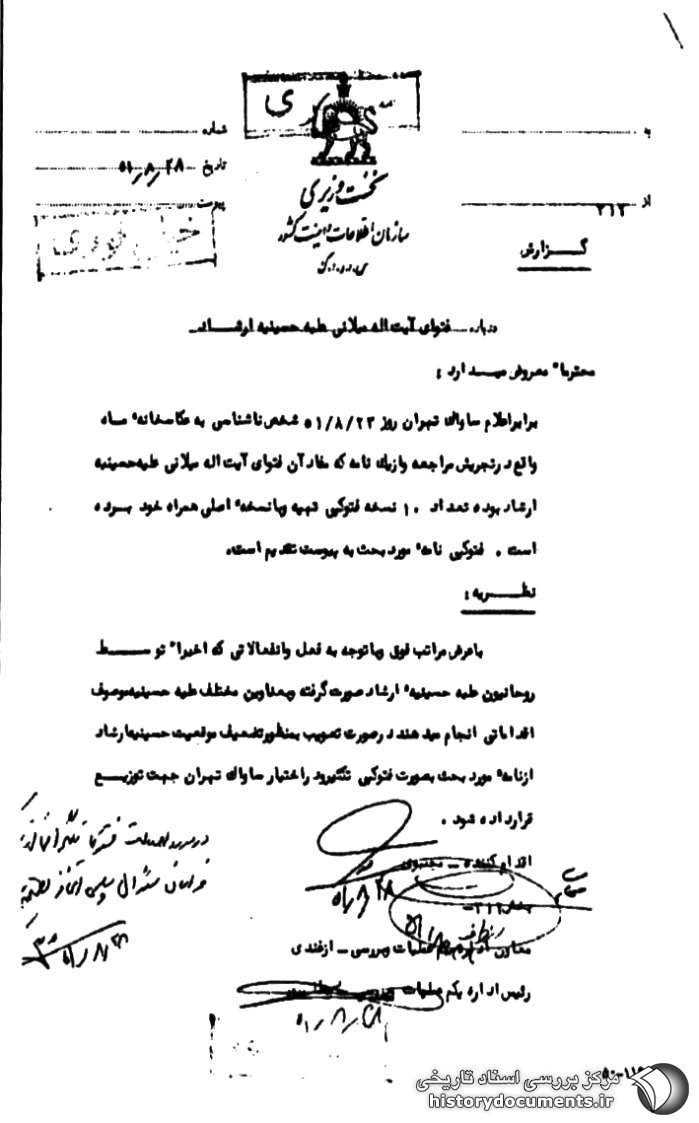 سری
به
شماره
تاریخ ۵۱/۸/۲۸
از ۳۱۲
پیوست
خیلی فوری
نخست وزیری
سازمان اطلاعات و امنیت کشور
س.ا.و.ا.ک
گـــزارش
درباره ــ فتوای آیت اله میلانی علیه حسینیه ارشـاد ــ
محترما" معروض میـدارد :
برابراعلام ساواک تهران روز ۵۱/۸/۲۳ شخص ناشناسی به عکاسخانه" مـاه
واقع درتجریش مراجعه وازیک نامه که مفادآن فتوای آیت اله میلانی علیه حسینیه
ارشاد بوده تعداد ۱۰ نسخه فتوکپی تهیه وبانسخه" اصلی همراه خود بـرده
است . فتوکپی نامه" مورد بحث به پیوست تقدیم است.
نظــریه :
باعرض مراتب فوق وباتوجه به فعل وانفعالاتی که اخیرا" تو ســط
روحانیون علیه حسینیه" ارشاد صورت گرفته وبعناوین مختلف علیه حسینیه موصوف
اقداماتی انجام میدهند درصورت تصویب بمنظورتضعیف موقعیت حسینیه ارشاد
ازنامه" مورد بحث بصورت فتوکپی تکثیرود راختیار ساواک تهران جهت توزیــع
قرارداده شود .
اقدام کننده ــ
۵۱/۸/۲۸
بخش ۳۱۲ــ
معاون اداره یکم عملیات وبررسی ــ ازغندی
رئیس اداره یکم عملیات
۵۱/۸/۲۸
۵۱/۸/۲۸
مرکز بررسی اسناد تاریخی
historydocuments.ir